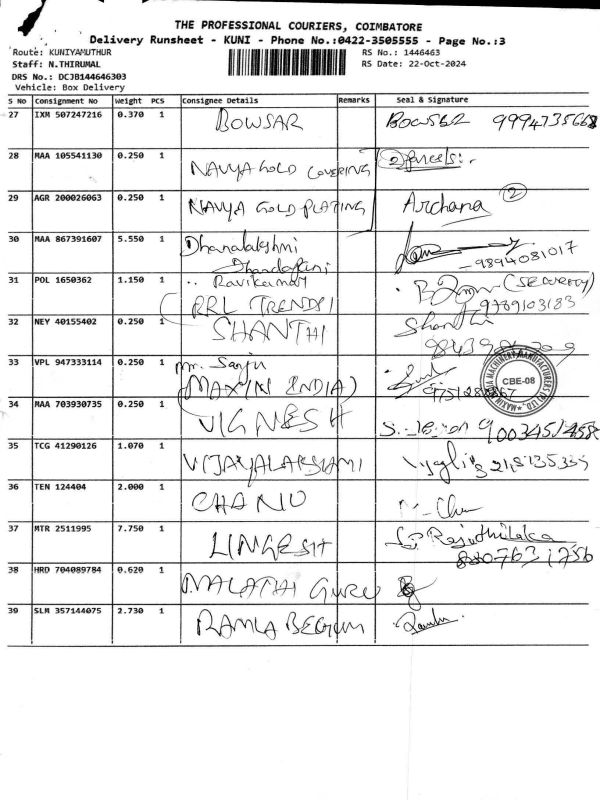 THE PROFESSIONAL COURIERS, COIMBATORE
Delivery Runsheet - KUNI - Phone No.:0422-3505555 - Page No.:3
Route: KUNIYAMUTHUR RS No.: 1446463
Staff: N.THIRUMAL RS Date: 22-Oct-2024
DRS No.: DCJB144646303
Vehicle: Box Delivery
S No Consignment No Weight PCS Consignee Details Remarks Seal & Signature
27 IXM 507247216 0.370 1 BOWSAR 9994735668
28 MAA 105541130 0.250 1 NAVYA GOLD COVERING 2 parcels:.
29 AGR 200026063 0.250 1 NAVYA GOLD PLATING Archana 2
30 MAA 867391607 5.550 1 Dhanalakshmi
- 9894081017
31 POL 1650362 1.150 1 Ravikumar (SECURITY)
RRL TRENDS 9789103183
32 NEY 40155402 0.250 1 SHANTHI Shanthi
33 VPL 947333114 0.250 1 Mr. Sanju
(MAXIN INDIA)
CBE-08
34 MAA 703930735 0.250 1 VIGNESH
35 TCG 41290126 1.070 1 VIJAYALAKSHMI
36 TEN 124404 2.000 1 CHANU
37 MTR 2511995 7.750 1 LINGESH
38 HRD 704089784 0.620 1 MALATHI GURU
39 SLM 357144075 2.730 1 RAMLA BEGUM